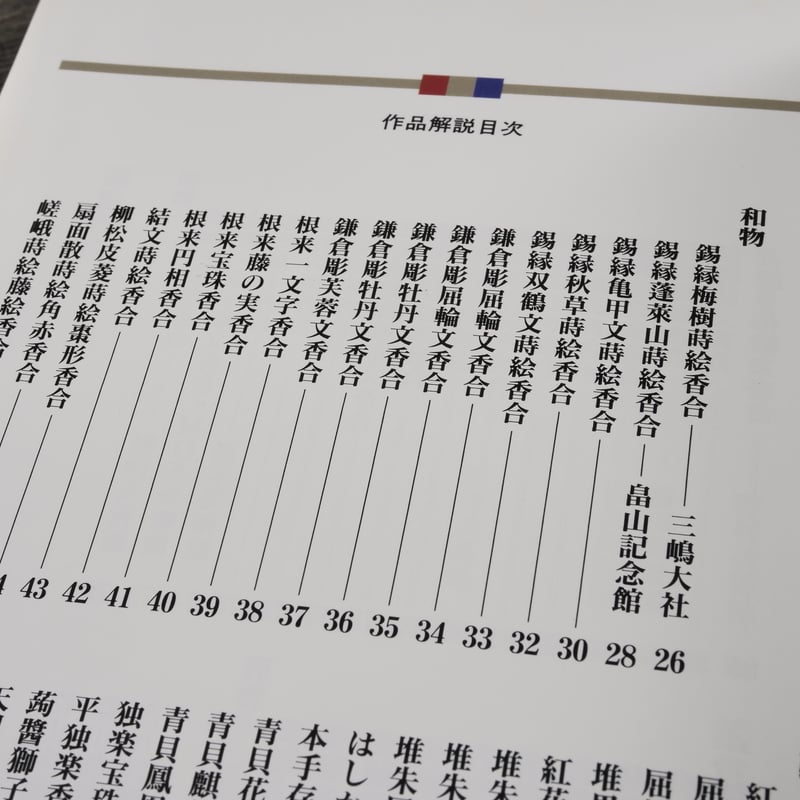 作品解説目次
和物
錫縁梅樹蒔絵香合
三嶋大社
26
錫縁蓬萊山蒔絵香合
畠山記念館
28
錫縁亀甲文蒔絵香合
30
錫縁秋草蒔絵香合
32
錫縁双鶴文蒔絵香合
33
鎌倉彫屈輪文香合
34
鎌倉彫屈輪文香合
35
鎌倉彫牡丹文香合
36
鎌倉彫牡丹文香合
37
鎌倉彫芙蓉文香合
38
根来一文字香合
39
根来藤の実香合
40
根来宝珠香合
41
根来円相香合
42
結文蒔絵香合
43
柳松皮菱蒔絵棗形香合
扇面散蒔絵角赤香合
嵯峨蒔絵藤絵香合
紅
屈
屈
堆
紅花
堆朱
堆朱
堆朱
はし
本手存
青貝花
青貝麒
青貝鳳
独楽宝珠
平独楽香
蒟醬獅子